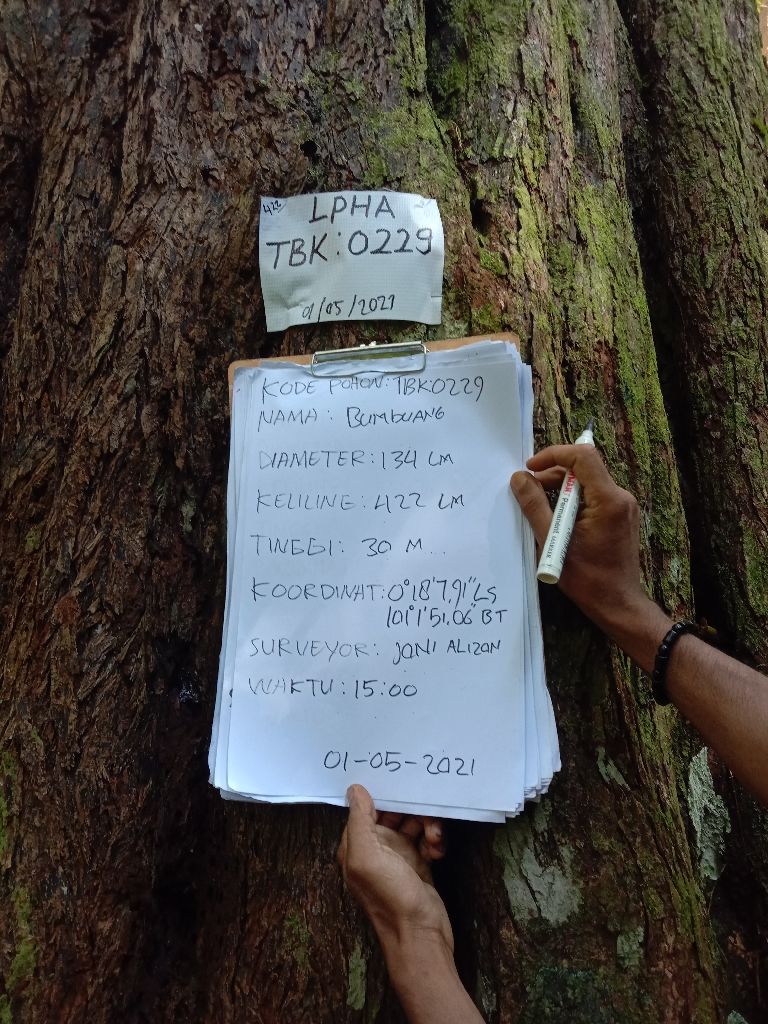 422
LPHA
TBK:0229
01/05/2021
KODE POHON: TBK0229
NAMA : BUMBUANG
DIAMETER: 134 CM
KELILING: 422 CM
TINGGI: 30 M..
KOORDINAT: 0°18'7,91"LS
101°1'51,06"BT
SURVEYOR: JONI ALIZON
WAKTU: 15:00
01-05-2021
Permanent MARKER